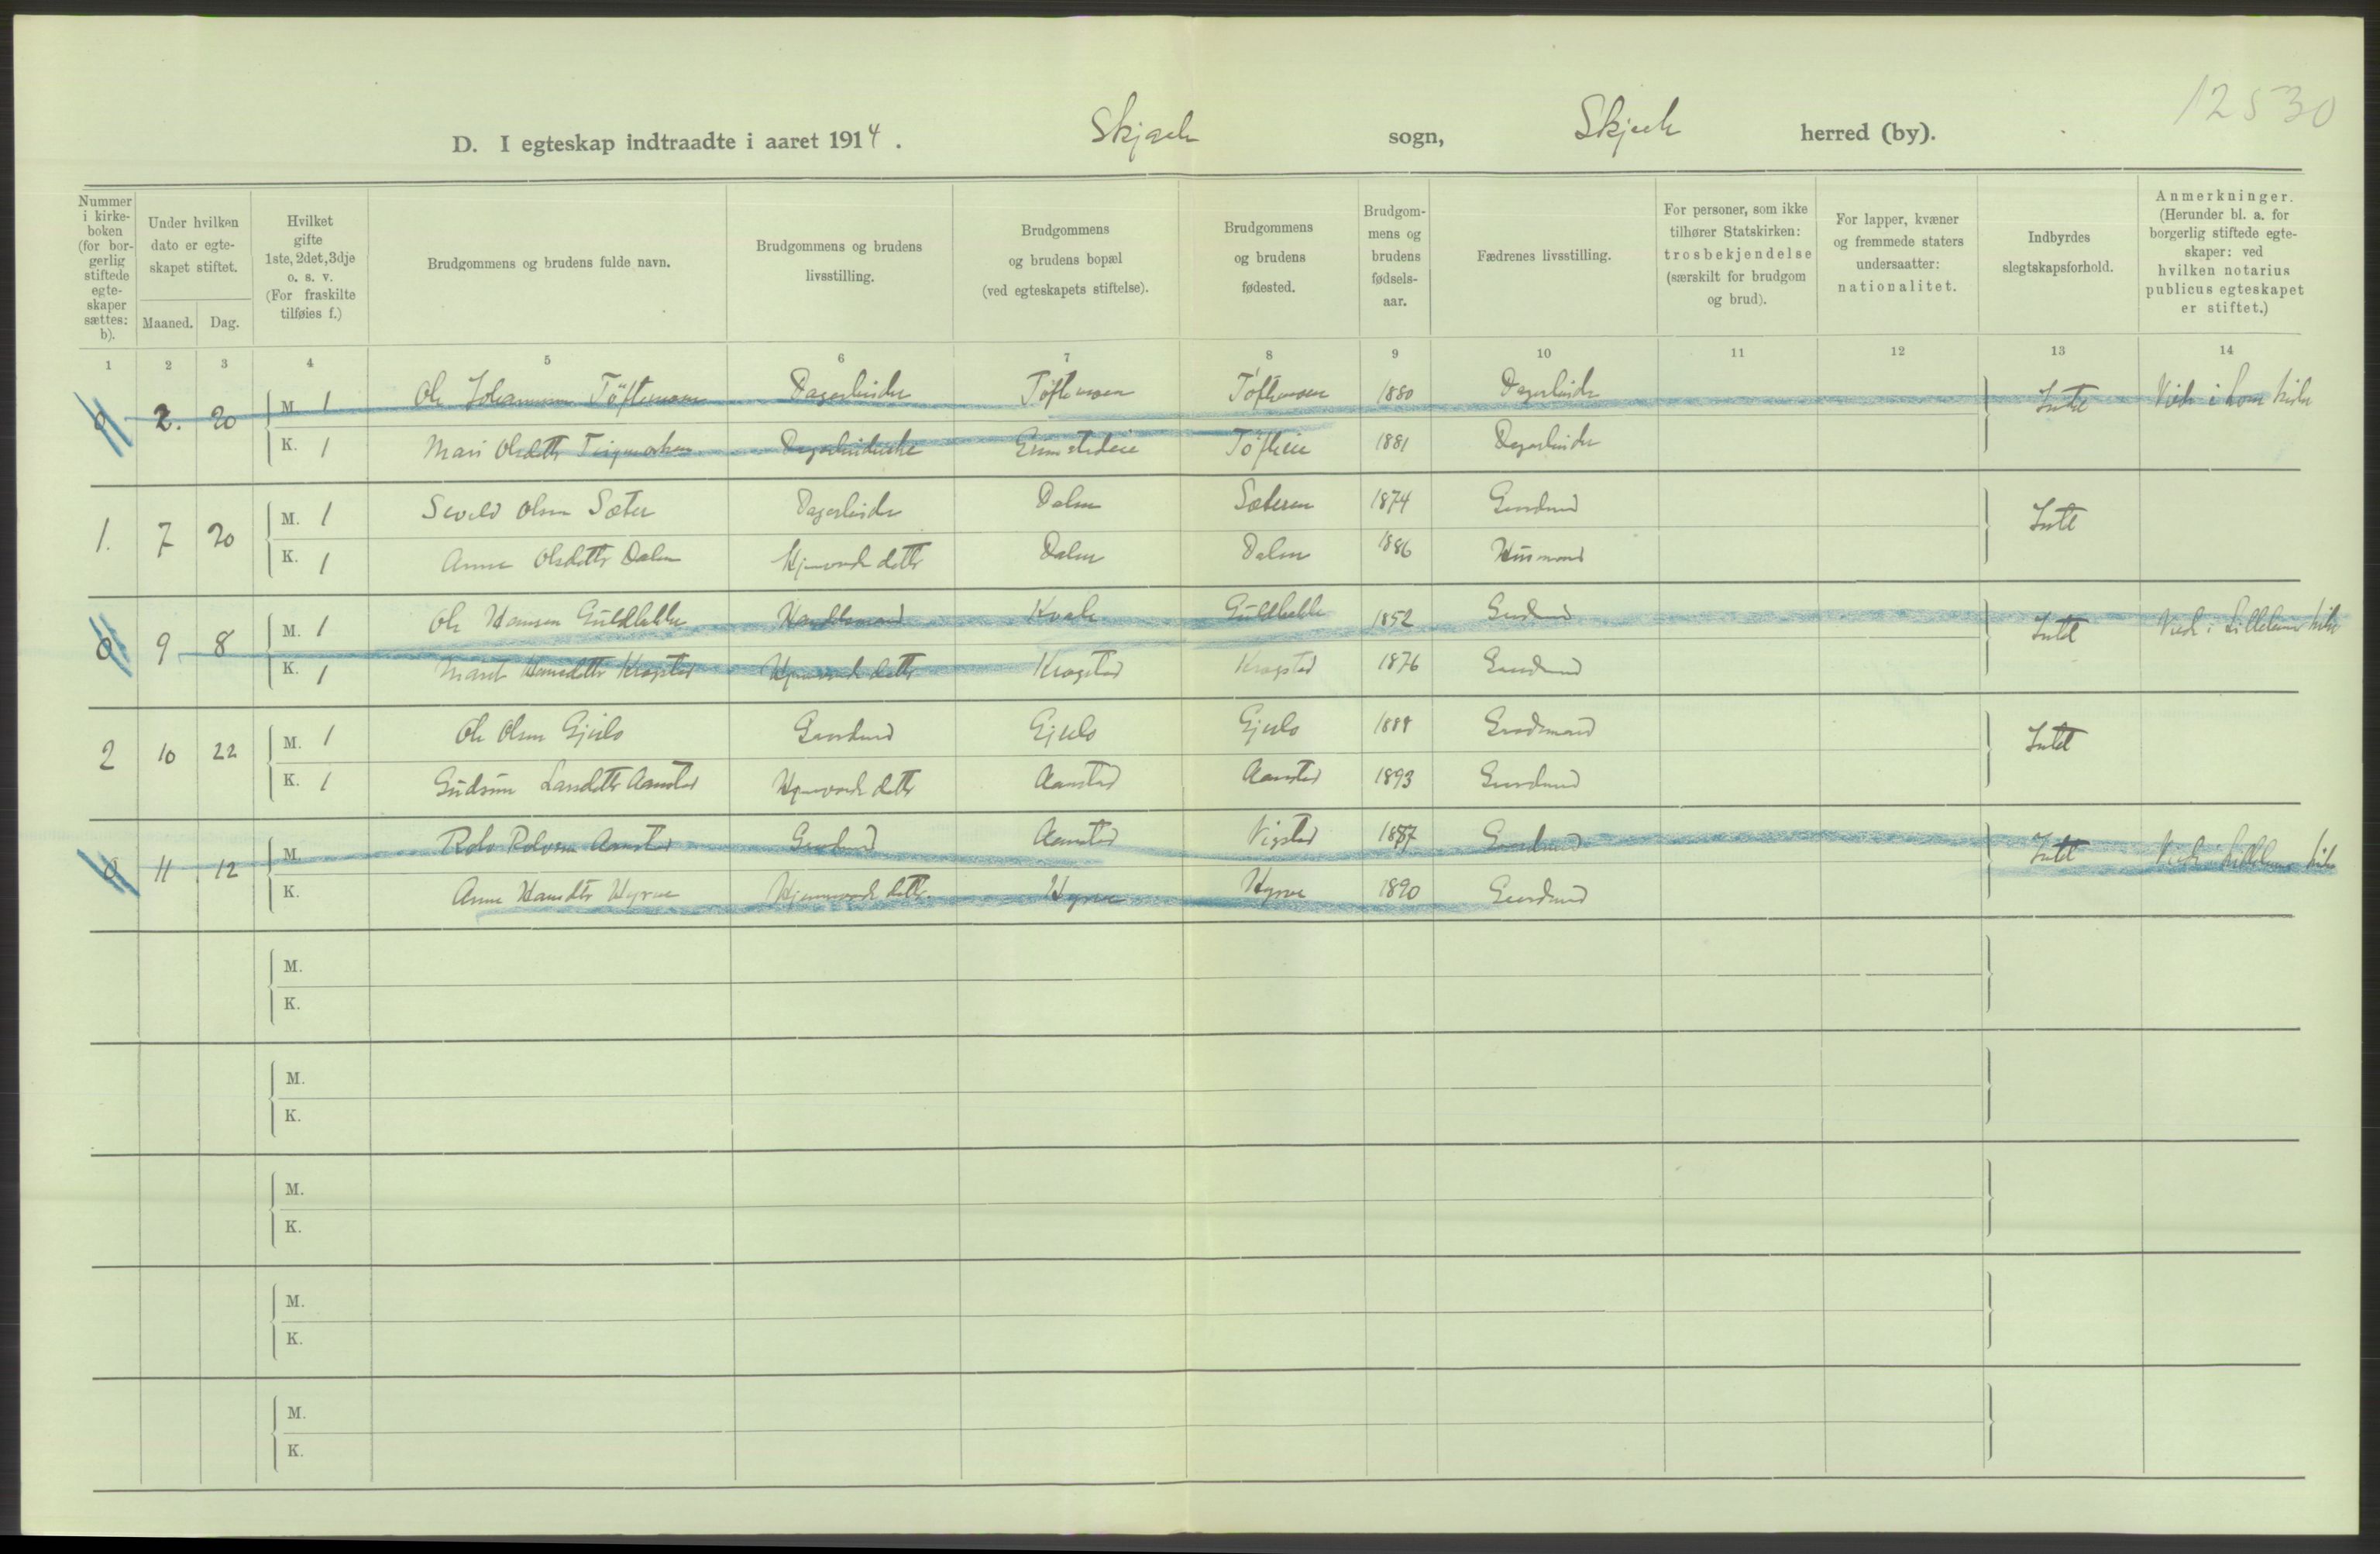 12530
D. I egteskap indtraadte i aaret 1914. Skjaak sogn, Skjaak herred (by).
Nummer i kirkeboken (for borgerlig stiftede egteskaper sættes: b).
Under hvilken dato er egteskapet stiftet.
Maaned. Dag.
Hvilket gifte 1ste, 2det, 3dje o. s. v. (For fraskilte tilføies f.)
Brudgommens og brudens fulde navn.
Brudgommens og brudens livsstilling.
Brudgommens og brudens bopæl (ved egteskapets stiftelse).
Brudgommens og brudens fødested.
Brudgommens og brudens fødselsaar.
Fædrenes livsstilling.
For personer, som ikke tilhører Statskirken: trosbekjendelse (særskilt for brudgom og brud).
For lapper, kvæner og fremmede staters undersaatter: nationalitet.
Indbyrdes slegtskapsforhold.
Anmerkninger. (Herunder bl. a. for borgerlig stiftede egteskaper: ved hvilken notarius publicus egteskapet er stiftet.)
1 2 3 4 5 6 7 8 9 10 11 12 13 14
0 2. 20 M. 1 Ole Johannesen Töftemoen Dagarbeider Töftemoen Töftemoen 1880 Dagarbeider Intet Viede i Lom kirke
K. 1 Mari Olsdatter Dagarbeiderske Grimstadeie Töfteeie 1881 Dagarbeider
1. 7 20 M. 1 Sevald Olsen Sæter Dagarbeider Dalen Sæteren 1874 Gaardmand Intet
K. 1 Anne Olsdatter Dalen Hjemmev. datter Dalen Dalen 1886 Husmand
0 9 8 M. 1 Ole Hansen Guldbakke Handelsmand Kvale Guldbakke 1852 Gaardmand Intet Viede i Lillehammer kirke
K. 1 Marit Hansdatter Krogstad Hjemmev. datter Krogstad Krogstad 1876 Gaardmand
2 10 22 M. 1 Ole Olsen Gjeilo Gaardmand Gjeilo Gjeilo 1888 Gaardmand Intet
K. 1 Gudrun Larsdatter Aamstad Hjemmev. datter Aamstad Aamstad 1893 Gaardmand
0 11 12 M. Rolv Rolvsen Aamstad Gaardmand Aamstad Vigstad 1887 Gaardmand Intet Viede i Lillehammer kirke
K. Anne Hansdtr Hyrve Hjemmev. datter Hyrve Hyrve 1890 Gaardmand
M.
K.
M.
K.
M.
K.
M.
K.
M.
K.